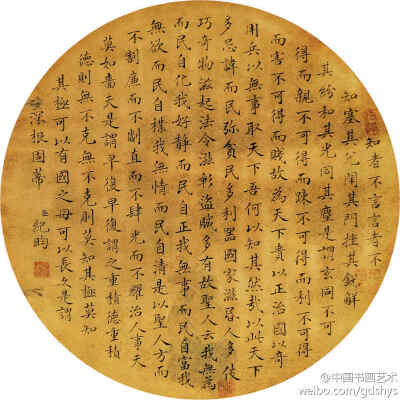 知者不言言者不
知塞其兌閉其門挫其銳解
其紛和其光同其塵是謂玄同不可
得而親不可得而踈不可得而利不可得
而害不可得而賤故為天下貴以正治國以奇
用兵以無事取天下吾何以知其然哉以此天下
多忌諱而民弥貧民多利器國家滋昬人多伎
巧奇物滋起法令滋彰盜賊多有故聖人云我無為
而民自化我好静而民自正我無事而民自富我
無欲而民自樸我無情而民自清是以聖人方而
不割廉而不劌直而不肆光而不耀治人事天
莫如嗇夫是謂早復早復謂之重積德重積
德則無不克無不克則莫知其極莫知
其極可以有國之母可以長久是謂
深根固蒂
紀昀
@中国书画艺术
weibo.com/gdshys